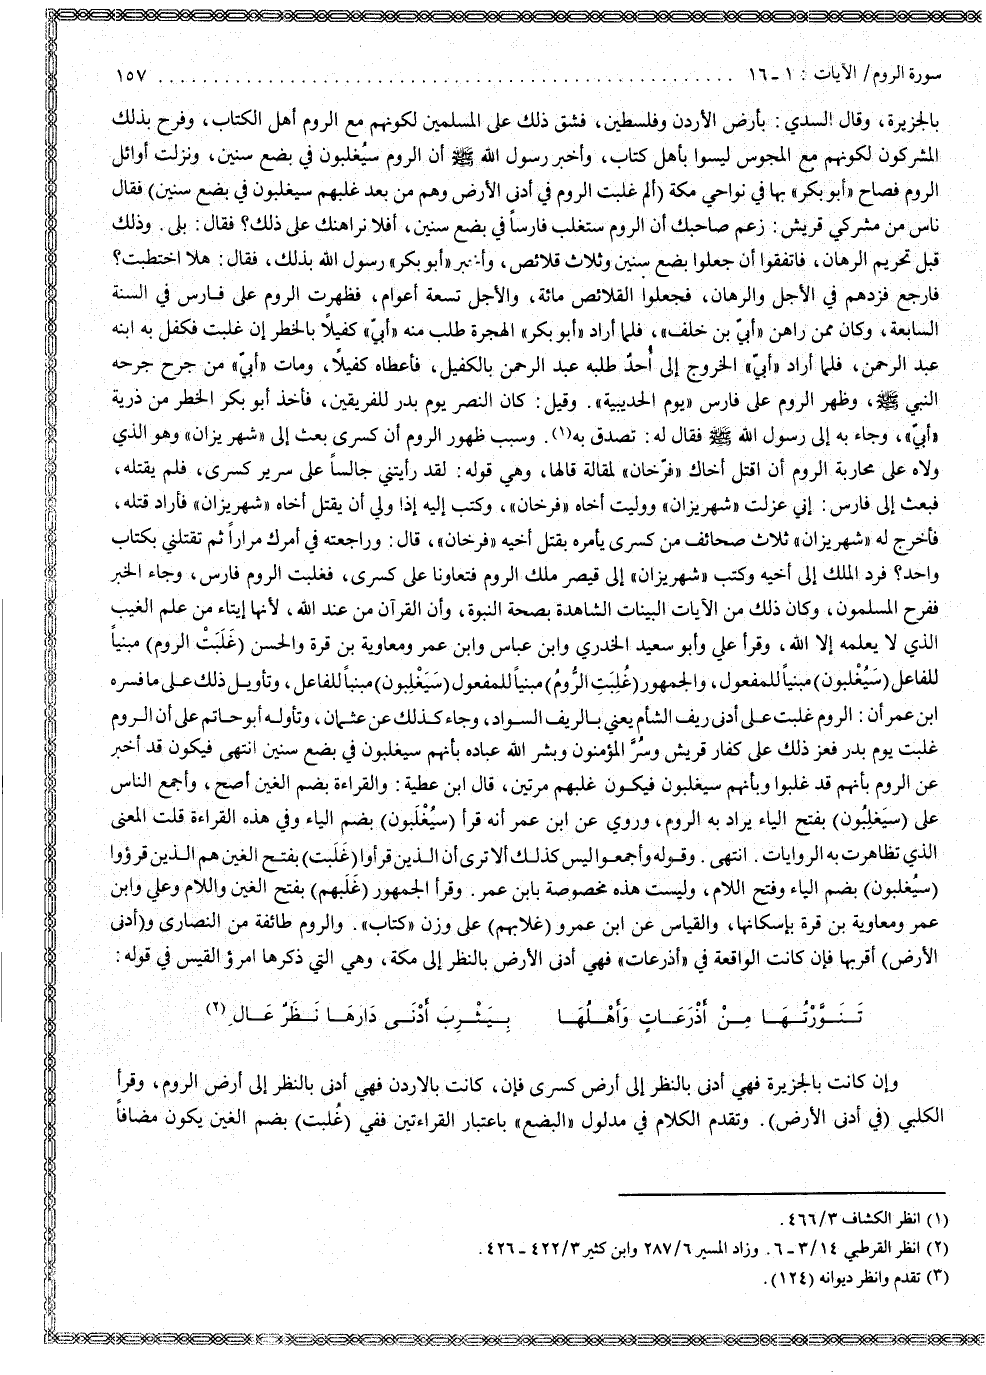 سورة الروم/ الآيات : ١ ـ ١٦ ............................................. ١٥٧
بالجزيرة، وقال السدي: بأرض الأردن وفلسطين، فشق ذلك على المسلمين لكونهم مع الروم أهل الكتاب، وفرح بذلك
المشركون لكونهم مع المجوس ليسوا بأهل كتاب، وأخبر رسول الله ﷺ أن الروم سيُغلبون في بضع سنين، ونزلت أوائل
الروم فصاح «أبو بكر» بها في نواحي مكة (ألم غلبت الروم في أدنى الأرض وهم من بعد غلبهم سيغلبون في بضع سنين) فقال
ناس من مشركي قريش: زعم صاحبك أن الروم ستغلب فارساً في بضع سنين، أفلا نراهنك على ذلك؟ فقال: بلى. وذلك
قبل تحريم الرهان، فاتفقوا أن جعلوا بضع سنين وثلاث قلائص، وأخبر «أبو بكر» رسول الله بذلك، فقال: هلا اختطبت؟
فارجع فزدهم في الأجل والرهان، فجعلوا القلائص مائة، والأجل تسعة أعوام، فظهرت الروم على فارس في السنة
السابعة، وكان ممن راهن «أبيّ بن خلف»، فلما أراد «أبو بكر» الهجرة طلب منه «أبيّ» كفيلاً بالخطر إن غلبت فكفل به ابنه
عبد الرحمن، فلما أراد «أبيّ» الخروج إلى أُحدٌ طلبه عبد الرحمن بالكفيل، فأعطاه كفيلاً، ومات «أبيّ» من جرح جرحه
النبي ﷺ، وظهر الروم على فارس «يوم الحديبية». وقيل: كان النصر يوم بدر للفريقين، فأخذ أبو بكر الخطر من ذرية
«أبيّ»، وجاء به إلى رسول الله ﷺ فقال له: تصدق به(١). وسبب ظهور الروم أن كسرى بعث إلى «شهريزان» وهو الذي
ولاه على محاربة الروم أن اقتل أخاك «فرّخان» لمقالة قالها، وهي قوله: لقد رأيتني جالساً على سرير كسرى، فلم يقتله،
فبعث إلى فارس: إني عزلت «شهريزان» ووليت أخاه «فرخان»، وكتب إليه إذا ولي أن يقتل أخاه «شهريزان» فأراد قتله،
فأخرج له «شهريزان» ثلاث صحائف من كسرى يأمره بقتل أخيه «فرخان»، قال: وراجعته في أمرك مراراً ثم تقتلني بكتاب
واحد؟ فرد الملك إلى أخيه وكتب «شهريزان» إلى قيصر ملك الروم فتعاونا على كسرى، فغلبت الروم فارس، وجاء الخبر
ففرح المسلمون، وكان ذلك من الآيات البينات الشاهدة بصحة النبوة، وأن القرآن من عند الله، لأنها إيتاء من علم الغيب
الذي لا يعلمه إلا الله، وقرأ علي وأبو سعيد الخدري وابن عباس وابن عمر ومعاوية بن قرة والحسن (غَلَبَتْ الروم) مبنياً
للفاعل (سَيُغْلبون) مبنياً للمفعول، والجمهور (غُلبَتِ الرُّومُ) مبنياً للمفعول (سَيَغْلِبون) مبنياً للفاعل، وتأويل ذلك على ما فسره
ابن عمر أن: الروم غلبت على أدنى ريف الشأم يعني بالريف السواد، وجاء كذلك عن عثمان، وتأوله أبو حاتم على أن الروم
غلبت يوم بدر فعز ذلك على كفار قريش وسُرَّ المؤمنون وبشر الله عباده بأنهم سيغلبون في بضع سنين انتهى فيكون قد أخبر
عن الروم بأنهم قد غلبوا وبأنهم سيغلبون فيكون غلبهم مرتين، قال ابن عطية: والقراءة بضم الغين أصح، وأجمع الناس
على (سَيَغلِبُون) بفتح الياء يراد به الروم، وروي عن ابن عمر أنه قرأ (سيُغْلَبون) بضم الياء وفي هذه القراءة قلت المعنى
الذي تظاهرت به الروايات. انتهى. وقوله وأجمعوا ليس كذلك ألا ترى أن الذين قرأوا (غَلَبت) بفتح الغين هم الذين قرؤوا
(سيُغلبون) بضم الياء وفتح اللام، وليست هذه مخصوصة بابن عمر. وقرأ الجمهور (غَلَبهم) بفتح الغين واللام وعلي وابن
عمر ومعاوية بن قرة بإسكانها، والقياس عن ابن عمرو (غلابهم) على وزن «كتاب». والروم طائفة من النصارى و(أدنى
الأرض) أقربها فإن كانت الواقعة في «أذرعات» فهي أدنى الأرض بالنظر إلى مكة، وهي التي ذكرها امرؤ القيس في قوله:
تَنَوَّرْتُهَا مِنْ أَذْرَعَاتٍ وَأَهْلُهَا بِيَثْرِبَ أَدْنَى دَارِهَا نَظَرٌ عَالِ(٢)
وإن كانت بالجزيرة فهي أدنى بالنظر إلى أرض كسرى فإن، كانت بالاردن فهي أدنى بالنظر إلى أرض الروم، وقرأ
الكلبي (في أدنى الأرض). وتقدم الكلام في مدلول «البضع» باعتبار القراءتين ففي (غُلبت) بضم الغين يكون مضافاً
(١) انظر الكشاف ٤٦٦/٣.
(٢) انظر القرطبي ٣/١٤ ـ ٦. وزاد المسير ٢٨٧/٦ وابن كثير ٤٢٢/٣ ـ ٤٢٦.
(٣) تقدم وانظر ديوانه (١٢٤).